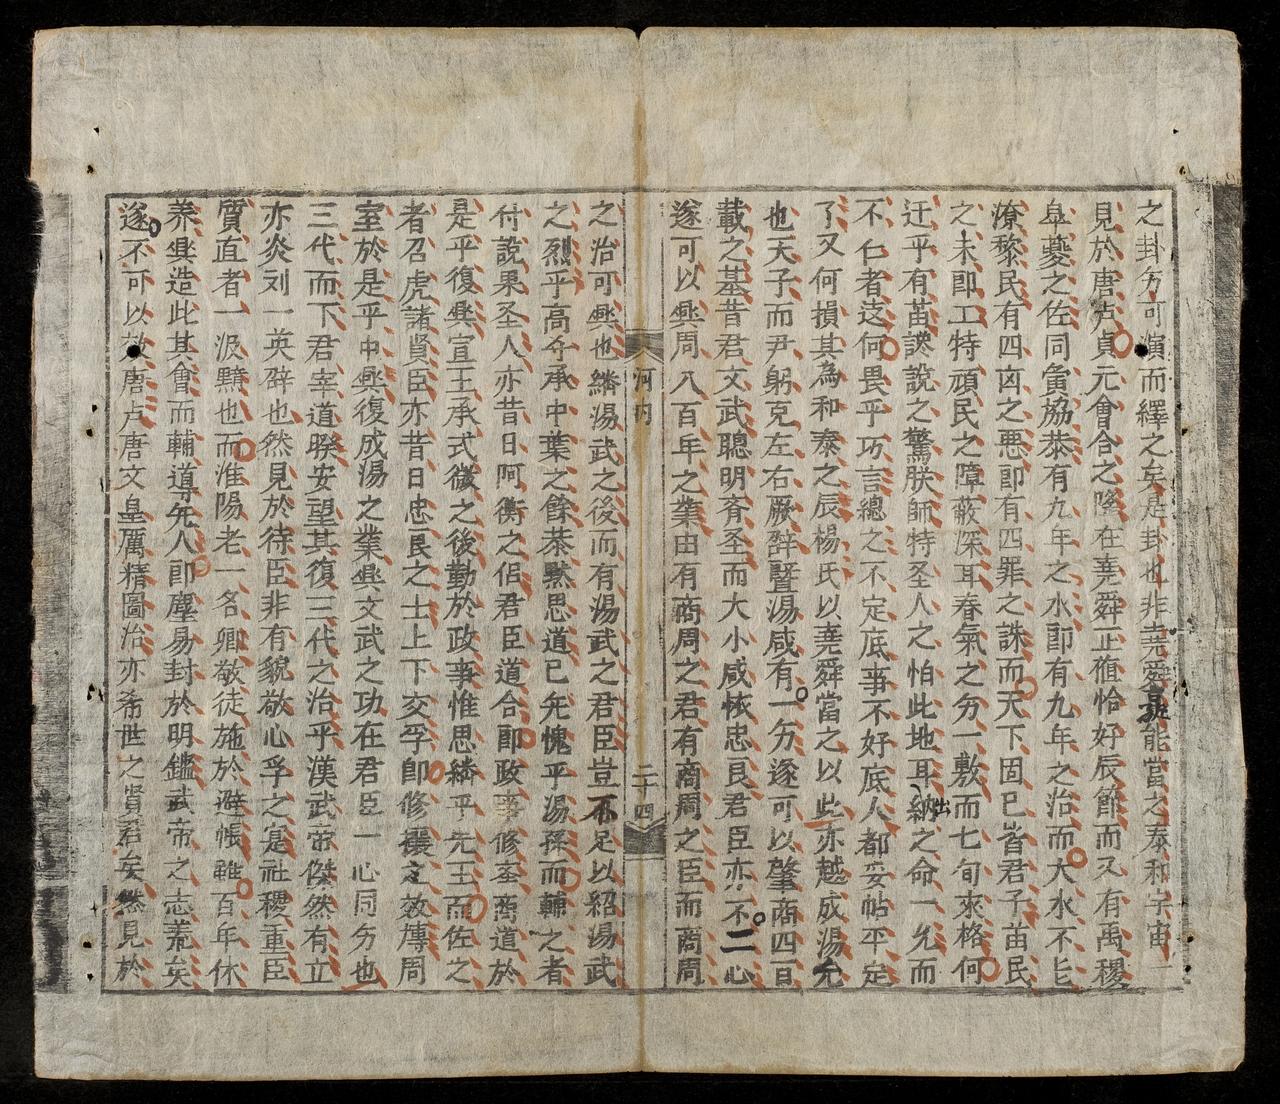 之卦方可類而繹之矣是卦也非堯舜孰能當之泰和宇宙一
見於唐虞貞元會合之隆在堯舜正值恰好辰節而又有禹稷
皐夔之佐同寅協恭有九年之水即有九年之治而大水不㠯
潦黎民有四凶之惡即有四罪之誅而天下固已皆君子苗民
之未即工特頑民之障蔽深耳春氣之方一敷而七旬來格何
迂乎有苗讒說之驚朕師特圣人之怕此地耳納之命一允而
不仁者遠何畏乎巧言總之不定底事不好底人都妥帖平定
了又何損其為和泰之辰楊氏以堯舜當之以此亦越成湯允
也天子而尹躬克左右厥辟曁湯咸有一分遂可以肇商四百
載之基昔君文武聰明斉圣而大小咸恢忠良君臣亦不二心
遂可以興周八百年之業由有商周之君有商周之臣而商周
河內
二十四
之治可興也繼湯武之後而有湯武之君臣豈不足以紹湯武
之烈乎高宗承中葉之餘恭默思道已先愧乎湯孫而輔之者
付說果圣人亦昔日阿衡之侣君臣道合即政事修奎商道於
是乎復興宣王承式微之後勤於政事惟思繼乎先王而佐之
者召虎諸賢臣亦昔日忠良之士上下交孚即修攘之效傳周
室於是乎中興復成湯之業興文武之功在君臣一心同方也
三代而下君宰道睽安望其復三代之治乎漢武帝傑然有立
亦炎刘一英辟也然見於待臣非有貌敬心孚之寔社稷重臣
質直者一汲黯也而淮陽老一名卿敬徒施於避帳雖百年休
養與造此其會而輔導先人即塵易封於明鑑武帝之志荒矣
遂不可以效唐虞唐文皇厲精圖治亦希世之賢君矣然見於